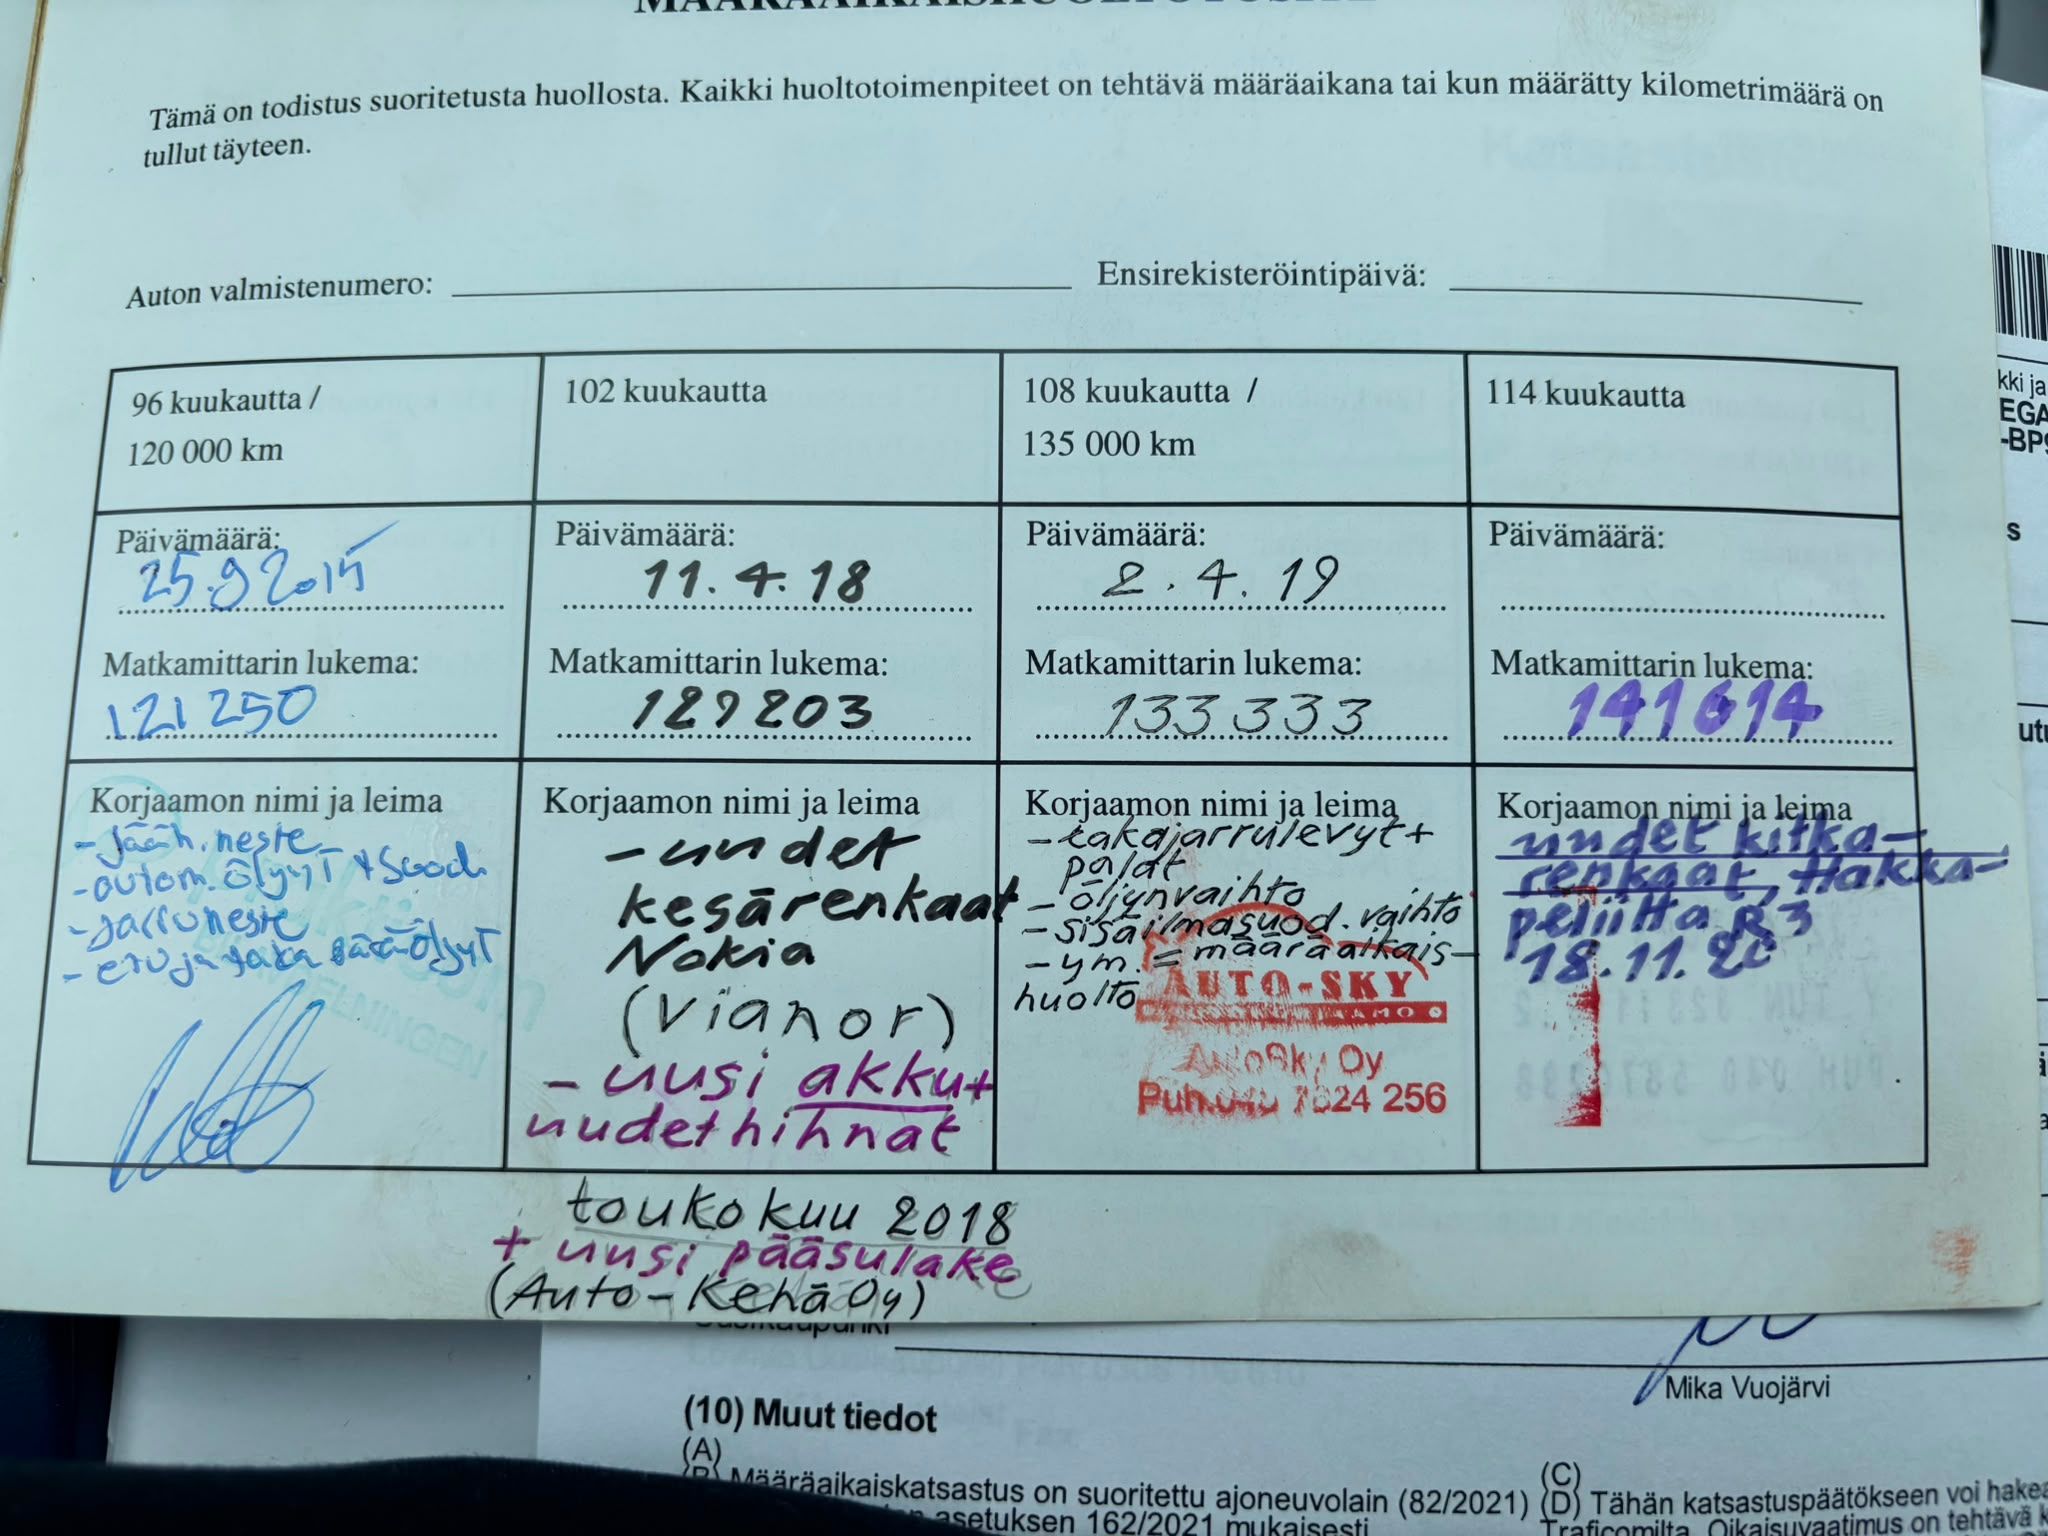 MÄÄRÄAIKAISHUOLTOTOSITE
Tämä on todistus suoritetusta huollosta. Kaikki huoltotoimenpiteet on tehtävä määräaikana tai kun määrätty kilometrimäärä on
tullut täyteen.
Auton valmistenumero:
Ensirekisteröintipäivä:
96 kuukautta /
120 000 km
Päivämäärä:
25.9 2015
Matkamittarin lukema:
121 250
Korjaamon nimi ja leima
- Jääh. neste
- autom. öljyt + suod
- jarruneste
- etu ja taka öljyt
102 kuukautta
Päivämäärä:
11.4.18
Matkamittarin lukema:
127203
Korjaamon nimi ja leima
- uudet
kesärenkaat
Nokia
(Vianor)
- uusi akku+
uudet hihnat
toukokuu 2018
+ uusi pääsulake
(Auto-Kehä Oy)
108 kuukautta /
135 000 km
Päivämäärä:
2.4.19
Matkamittarin lukema:
133 333
Korjaamon nimi ja leima
- takajarrulevyt +
palat
- öljynvaihto
- sisäilmasuod. vaihto
- ym. = määräaikais-
huolto
AUTO-SKY
AutoSky Oy
Puh. 7624 256
114 kuukautta
Päivämäärä:
Matkamittarin lukema:
141614
Korjaamon nimi ja leima
uudet kitka-
renkaat, Hakka-
peliitta R3
18.11.20
kki ja
EGA
-BP9
s
utu
Mika Vuojärvi
(10) Muut tiedot
(A)
(B) Määräaikaiskatsastus on suoritettu ajoneuvolain (82/2021)
asetuksen 162/2021 mukaisesti
(C)
(D) Tähän katsastuspäätökseen voi hakea
Traficomilta. Oikaisuvaatimus on tehtävä k